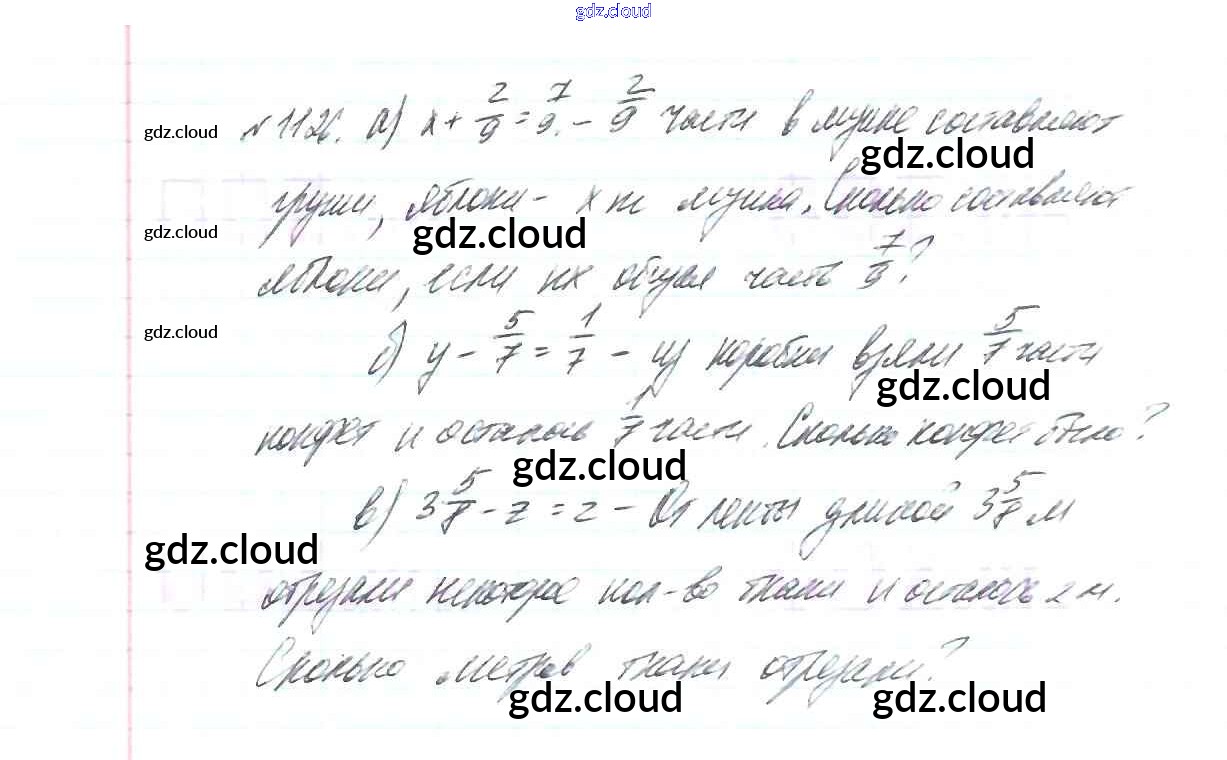 gdz.cloud
№ 1126. а) x + 2/9 = 7/9. - 2/9 части в миске составляют
gdz.cloud
gdz.cloud
груши, яблоки - x Сколько составляют
gdz.cloud
gdz.cloud
яблоки, если их общая часть 7/9?
gdz.cloud
б) y - 5/7 = 1/7 - из коробки взяли 5/7 части
gdz.cloud
конфет и осталось 1/7 части. Сколько конфет было?
gdz.cloud
в) 3 5/8 - z = 2 - От ленты длиной 3 5/8 м
gdz.cloud
отрезали некоторое кол-во ткани и осталось 2 м.
Сколько метров ткани отрезали?
gdz.cloud
gdz.cloud